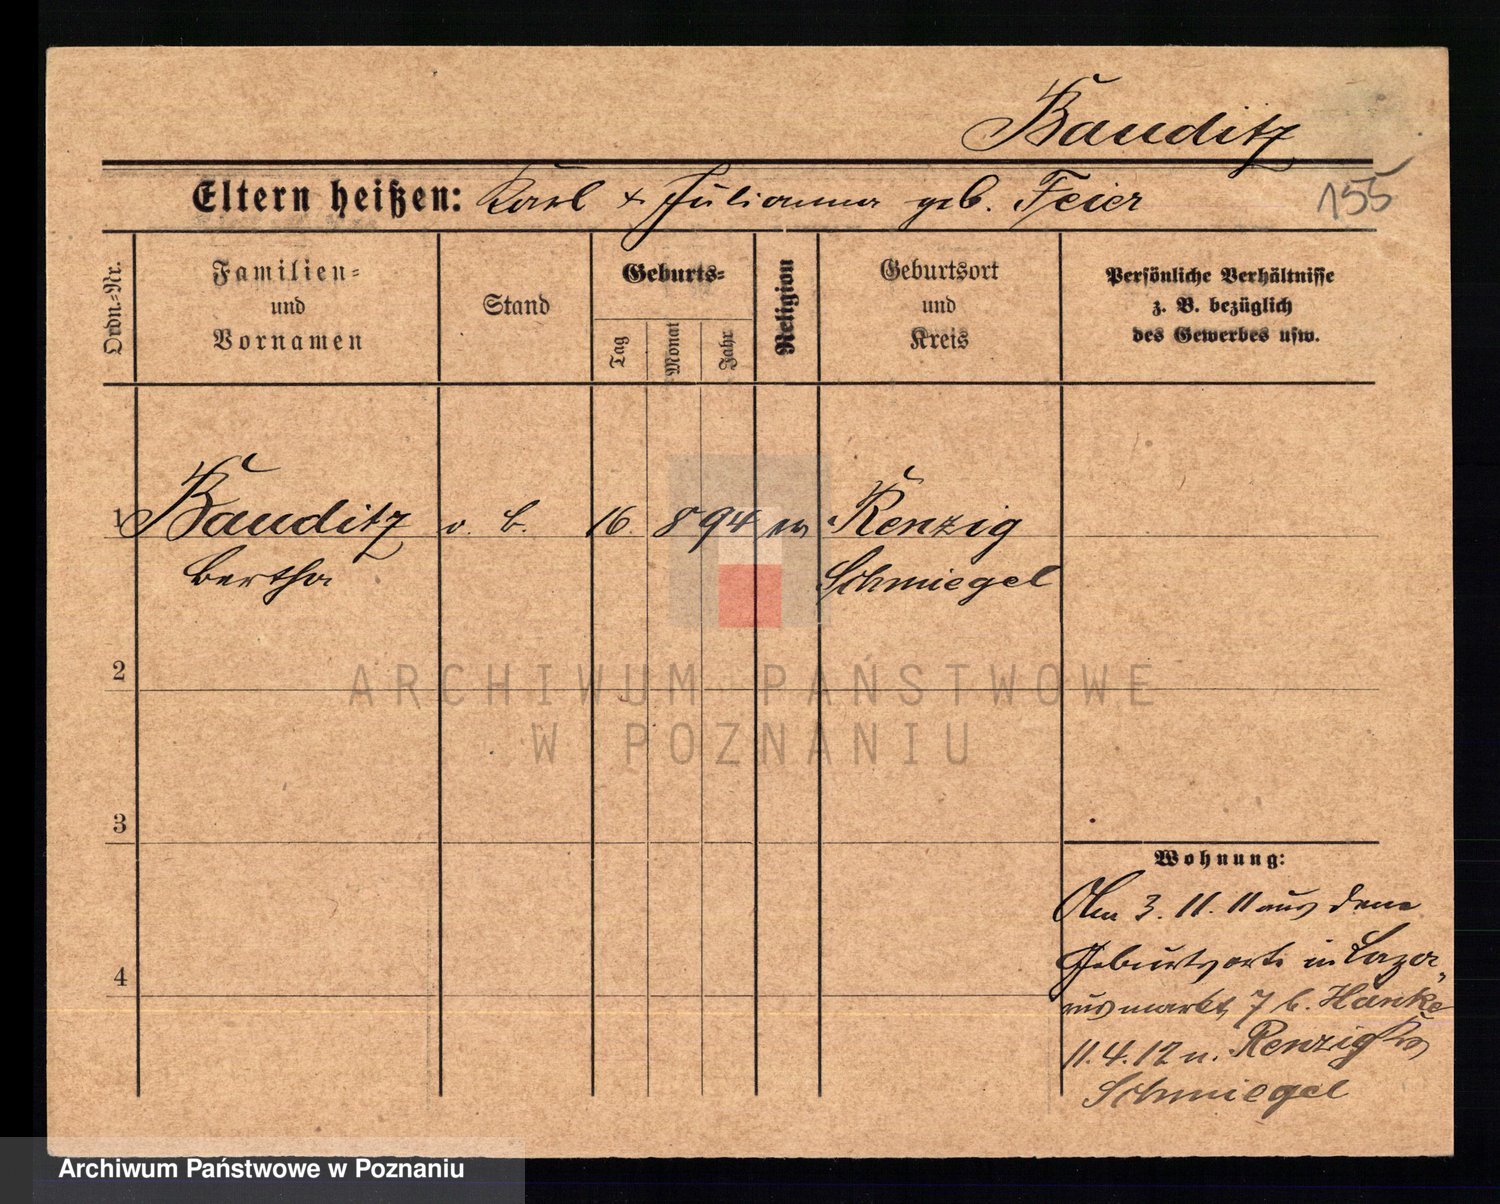 Bauditz
Eltern heißen: Karl + Julianna geb. Feier
155
Ordn.-Nr.
Familien-
und
Vornamen
Stand
Geburts-
Tag
Monat
Jahr
Religion
Geburtsort
und
Kreis
Persönliche Verhältnisse
z. B. bezüglich
des Gewerbes usw.
1 Bauditz o. b. 16 8 94 ev Renzig
Bertha Schmiegel
2
ARCHIWUM PAŃSTWOWE
W POZNANIU
3
Wohnung:
Am 3. 11. 11 aus dem
Geburtsorte in Laza-
rusmarkt 7 b. Hanke
11. 4. 12 n. Renzig Krs
Schmiegel
4
Archiwum Państwowe w Poznaniu